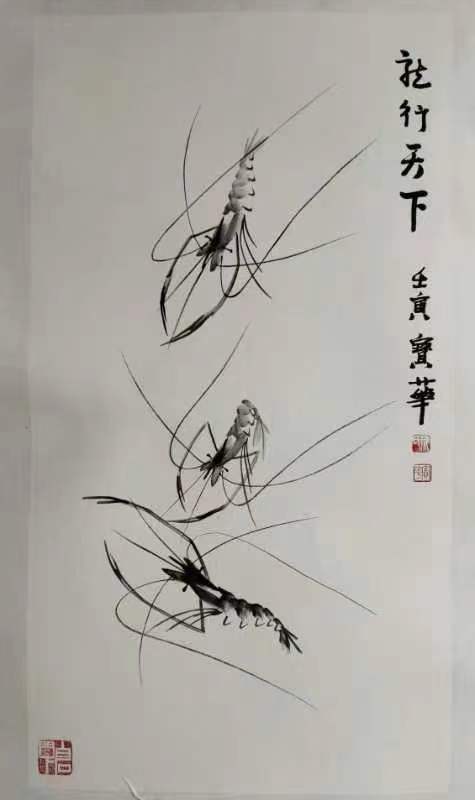 龙行天下 壬寅 寶華